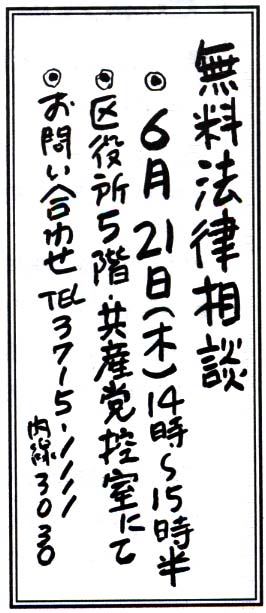 無料法律相談
◉6月21日(木)14時~15時半
◉区役所5階・共産党控室にて
◉お問い合わせ TEL 3715-1111
内線3030